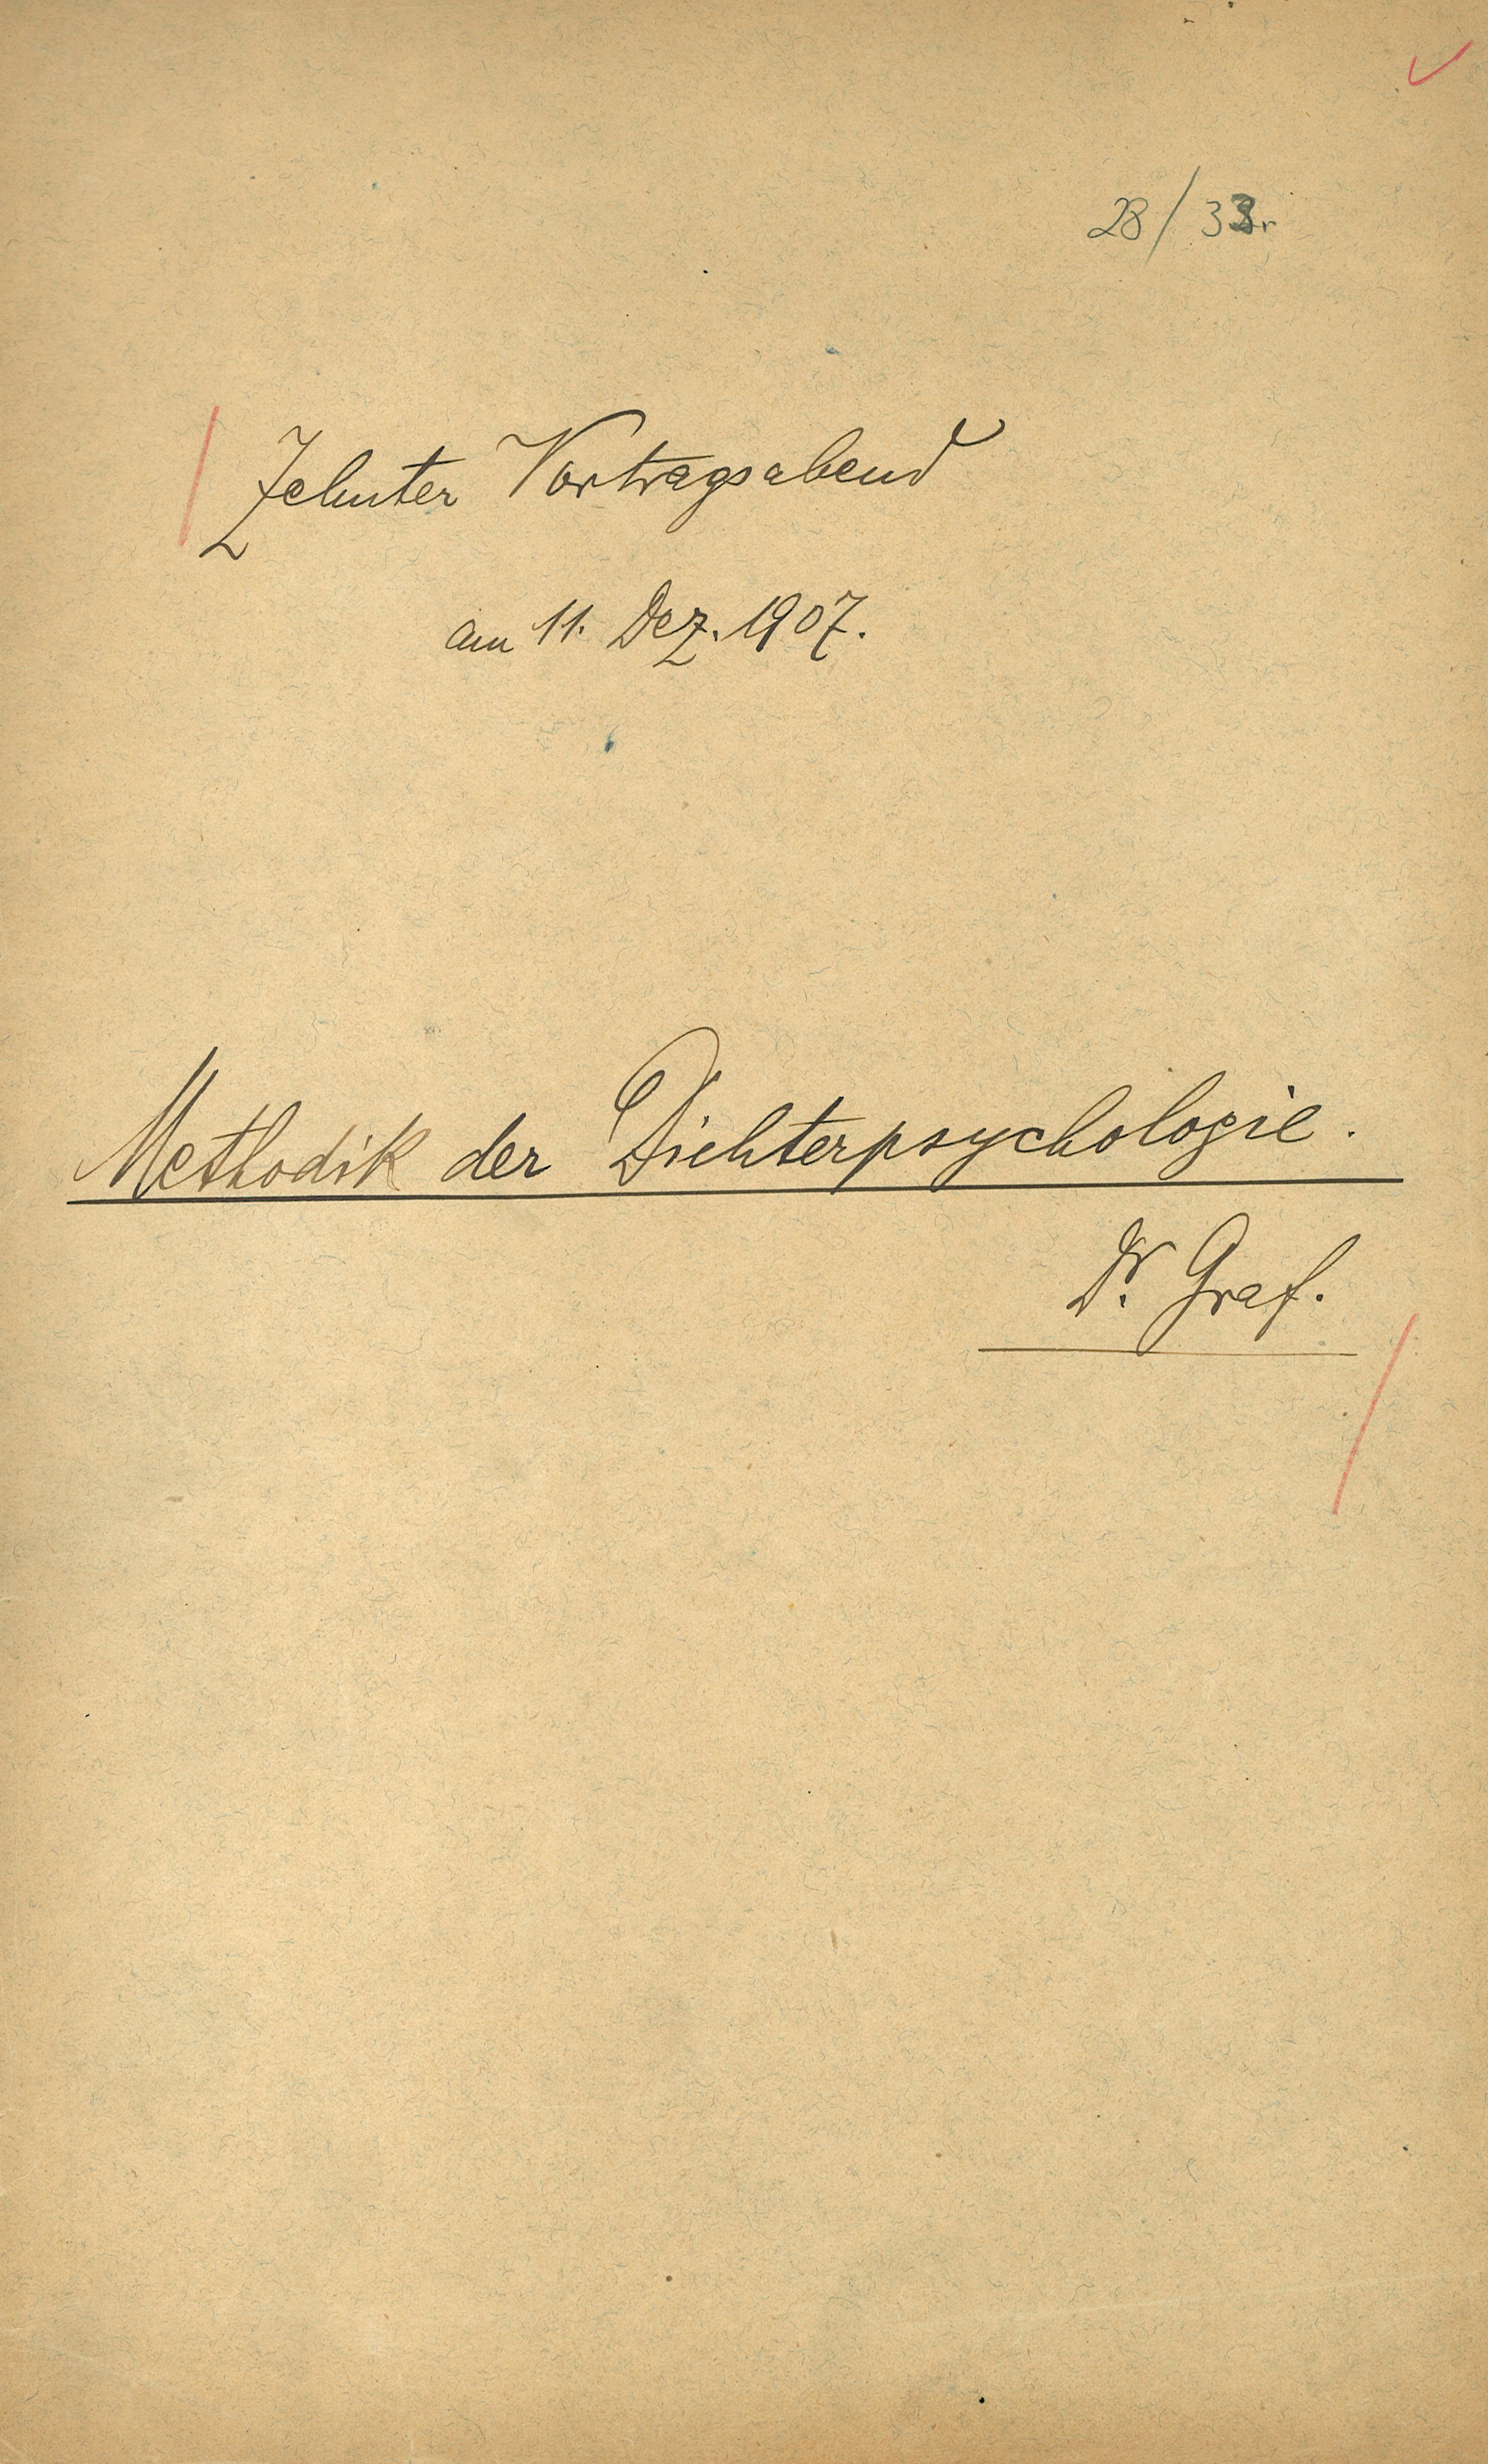 28/33r
Zehnter Vortragsabend
am 11. Dez. 1907.
Methodik der Dichterpsychologie.
Dr. Graf.